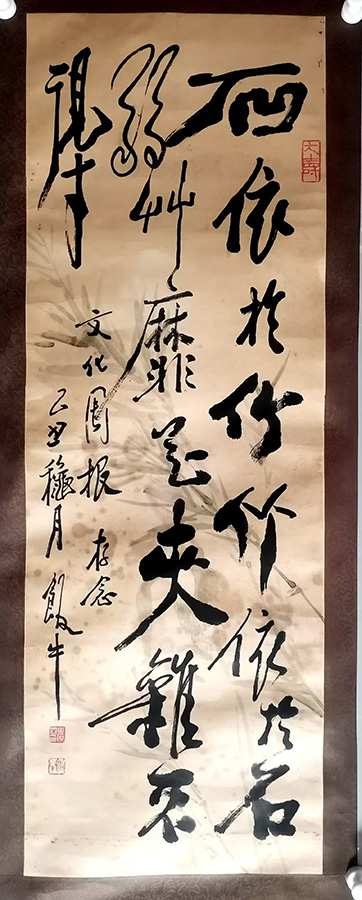 石依於竹竹依於石
弱艸靡花夾雜不
得
文化周报存念
乙丑穐月飯牛